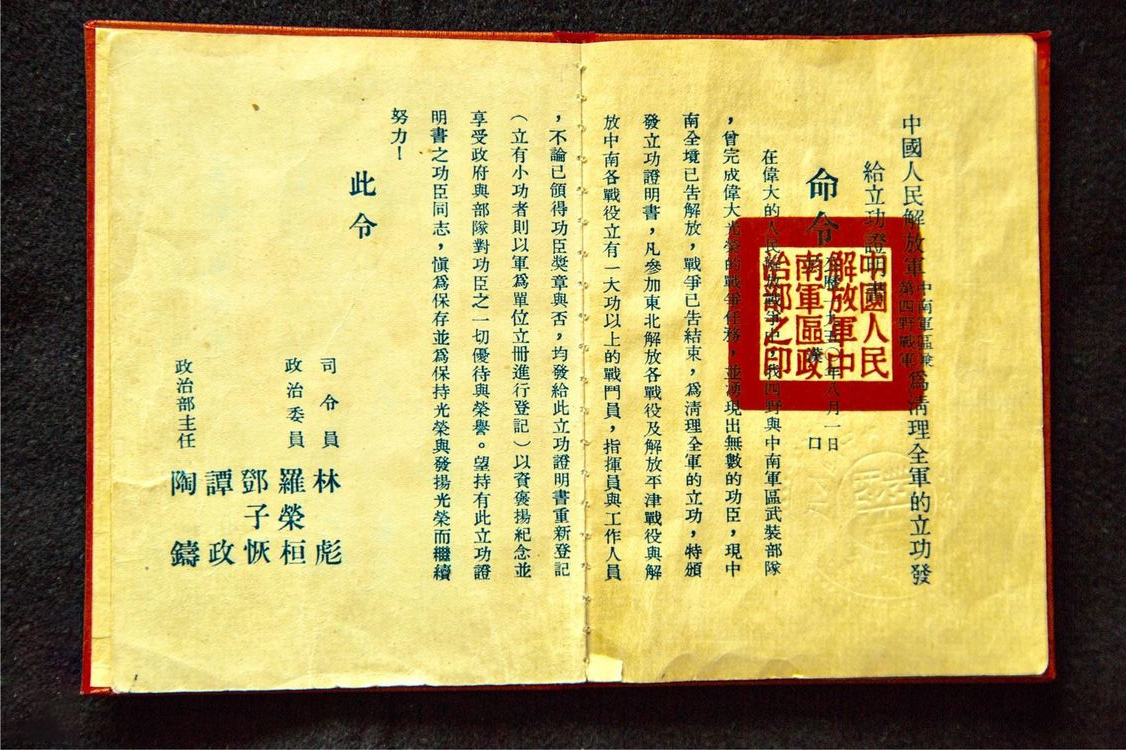 中國人民解放軍中南軍區兼第四野戰軍爲清理全軍的立功發
給立功證明書
命令
一九五〇年八月一日
口
在偉大的人民解放戰爭中,我四野與中南軍區武裝部隊
,曾完成偉大光榮的戰爭任務,並湧現出無數的功臣,現中
南全境已告解放,戰爭已告結束,爲清理全軍的立功,特頒
發立功證明書,凡參加東北解放各戰役及解放平津戰役與解
放中南各戰役立有一大功以上的戰鬥員,指揮員與工作人員
,不論已領得功臣獎章與否,均發給此立功證明書重新登記
(立有小功者則以軍爲單位立冊進行登記)以資褒揚紀念並
享受政府與部隊對功臣之一切優待與榮譽。望持有此立功證
明書之功臣同志,愼爲保存並爲保持光榮與發揚光榮而繼續
努力!
此令
司令員 林彪
政治委員 羅榮桓
鄧子恢
譚政
政治部主任 陶鑄
中國人民
解放軍中
南軍區政
治部之印